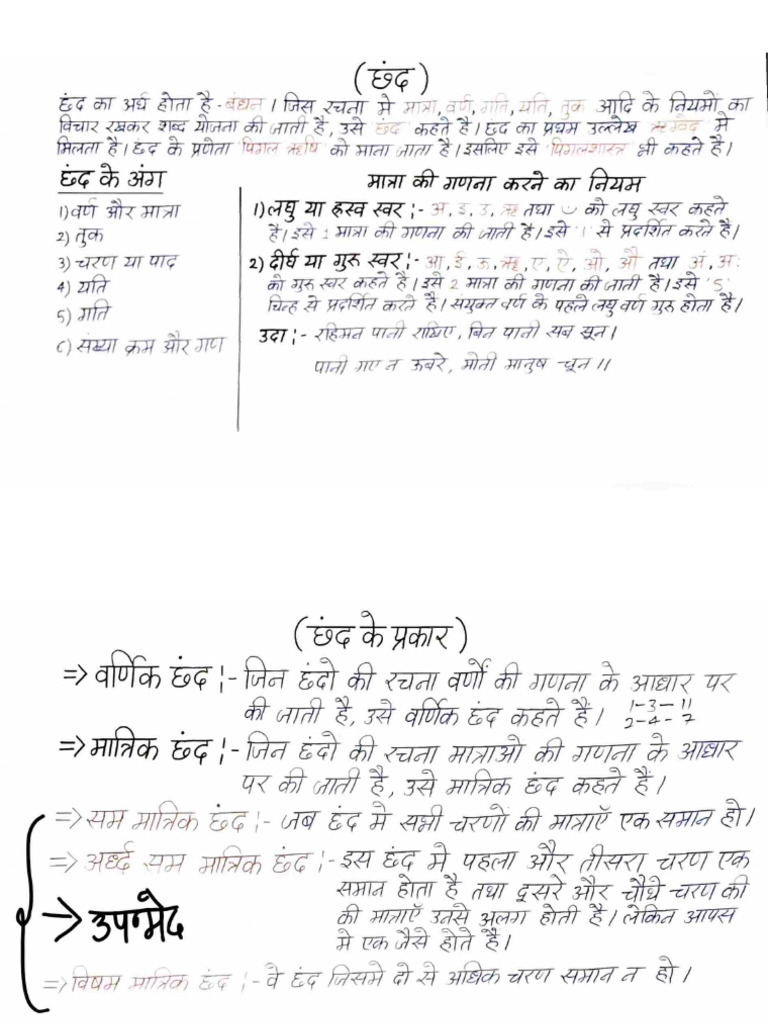 (छंद)
छंद का अर्थ होता है - बंधन । जिस रचना मे मात्रा, वर्ण, गति, यति, तुक आदि के नियमों का
विचार रखकर शब्द योजना की जाती है, उसे 'छंद' कहते है। छंद का प्रथम उल्लेख 'ऋग्वेद' मे
मिलता है। छंद के प्रणेता 'पिंगल ऋषि' को माना जाता है। इसलिए इसे 'पिंगलशास्त्र' भी कहते है।
छंद के अंग
1) वर्ण और मात्रा
2) तुक
3) चरण या पाद
4) यति
5) गति
6) संख्या क्रम और गण
मात्रा की गणना करने का नियम
1) लघु या ह्रस्व स्वर :- अ, इ, उ, ऋ तथा ◡ को लघु स्वर कहते
है। इसे 1 मात्रा की गणना की जाती है। इसे '।' से प्रदर्शित करते है।
2) दीर्घ या गुरु स्वर :- आ, ई, ऊ, ॠ, ए, ऐ, ओ, औ तथा अं, अः
को गुरु स्वर कहते है। इसे 2 मात्रा की गणना की जाती है। इसे 'S'
चिन्ह से प्रदर्शित करते है। संयुक्त वर्ण के पहले लघु वर्ण गुरु होता है।
उदा :- रहिमन पानी राखिए, बिन पानी सब सून।
पानी गए न ऊबरे, मोती मानुष चून ।।
(छंद के प्रकार)
=> वर्णिक छंद :- जिन छंदो की रचना वर्णों की गणना के आधार पर
की जाती है, उसे वर्णिक छंद कहते हैं। 1-3-11
2-4-7
=> मात्रिक छंद :- जिन छंदो की रचना मात्राओ की गणना के आधार
पर की जाती है, उसे मात्रिक छंद कहते हैं।
=> सम मात्रिक छंद :- जब छंद मे सभी चरणों की मात्राएँ एक समान हो।
=> अर्ध्द सम मात्रिक छंद :- इस छंद मे पहला और तीसरा चरण एक
समान होता है तथा दूसरे और चौथे चरण की
की मात्राएँ उनसे अलग होती है। लेकिन आपस
मे एक जैसे होते है।
-> उपभेद
=> विषम मात्रिक छंद :- वे छंद जिसमे दो से अधिक चरण समान न हो।